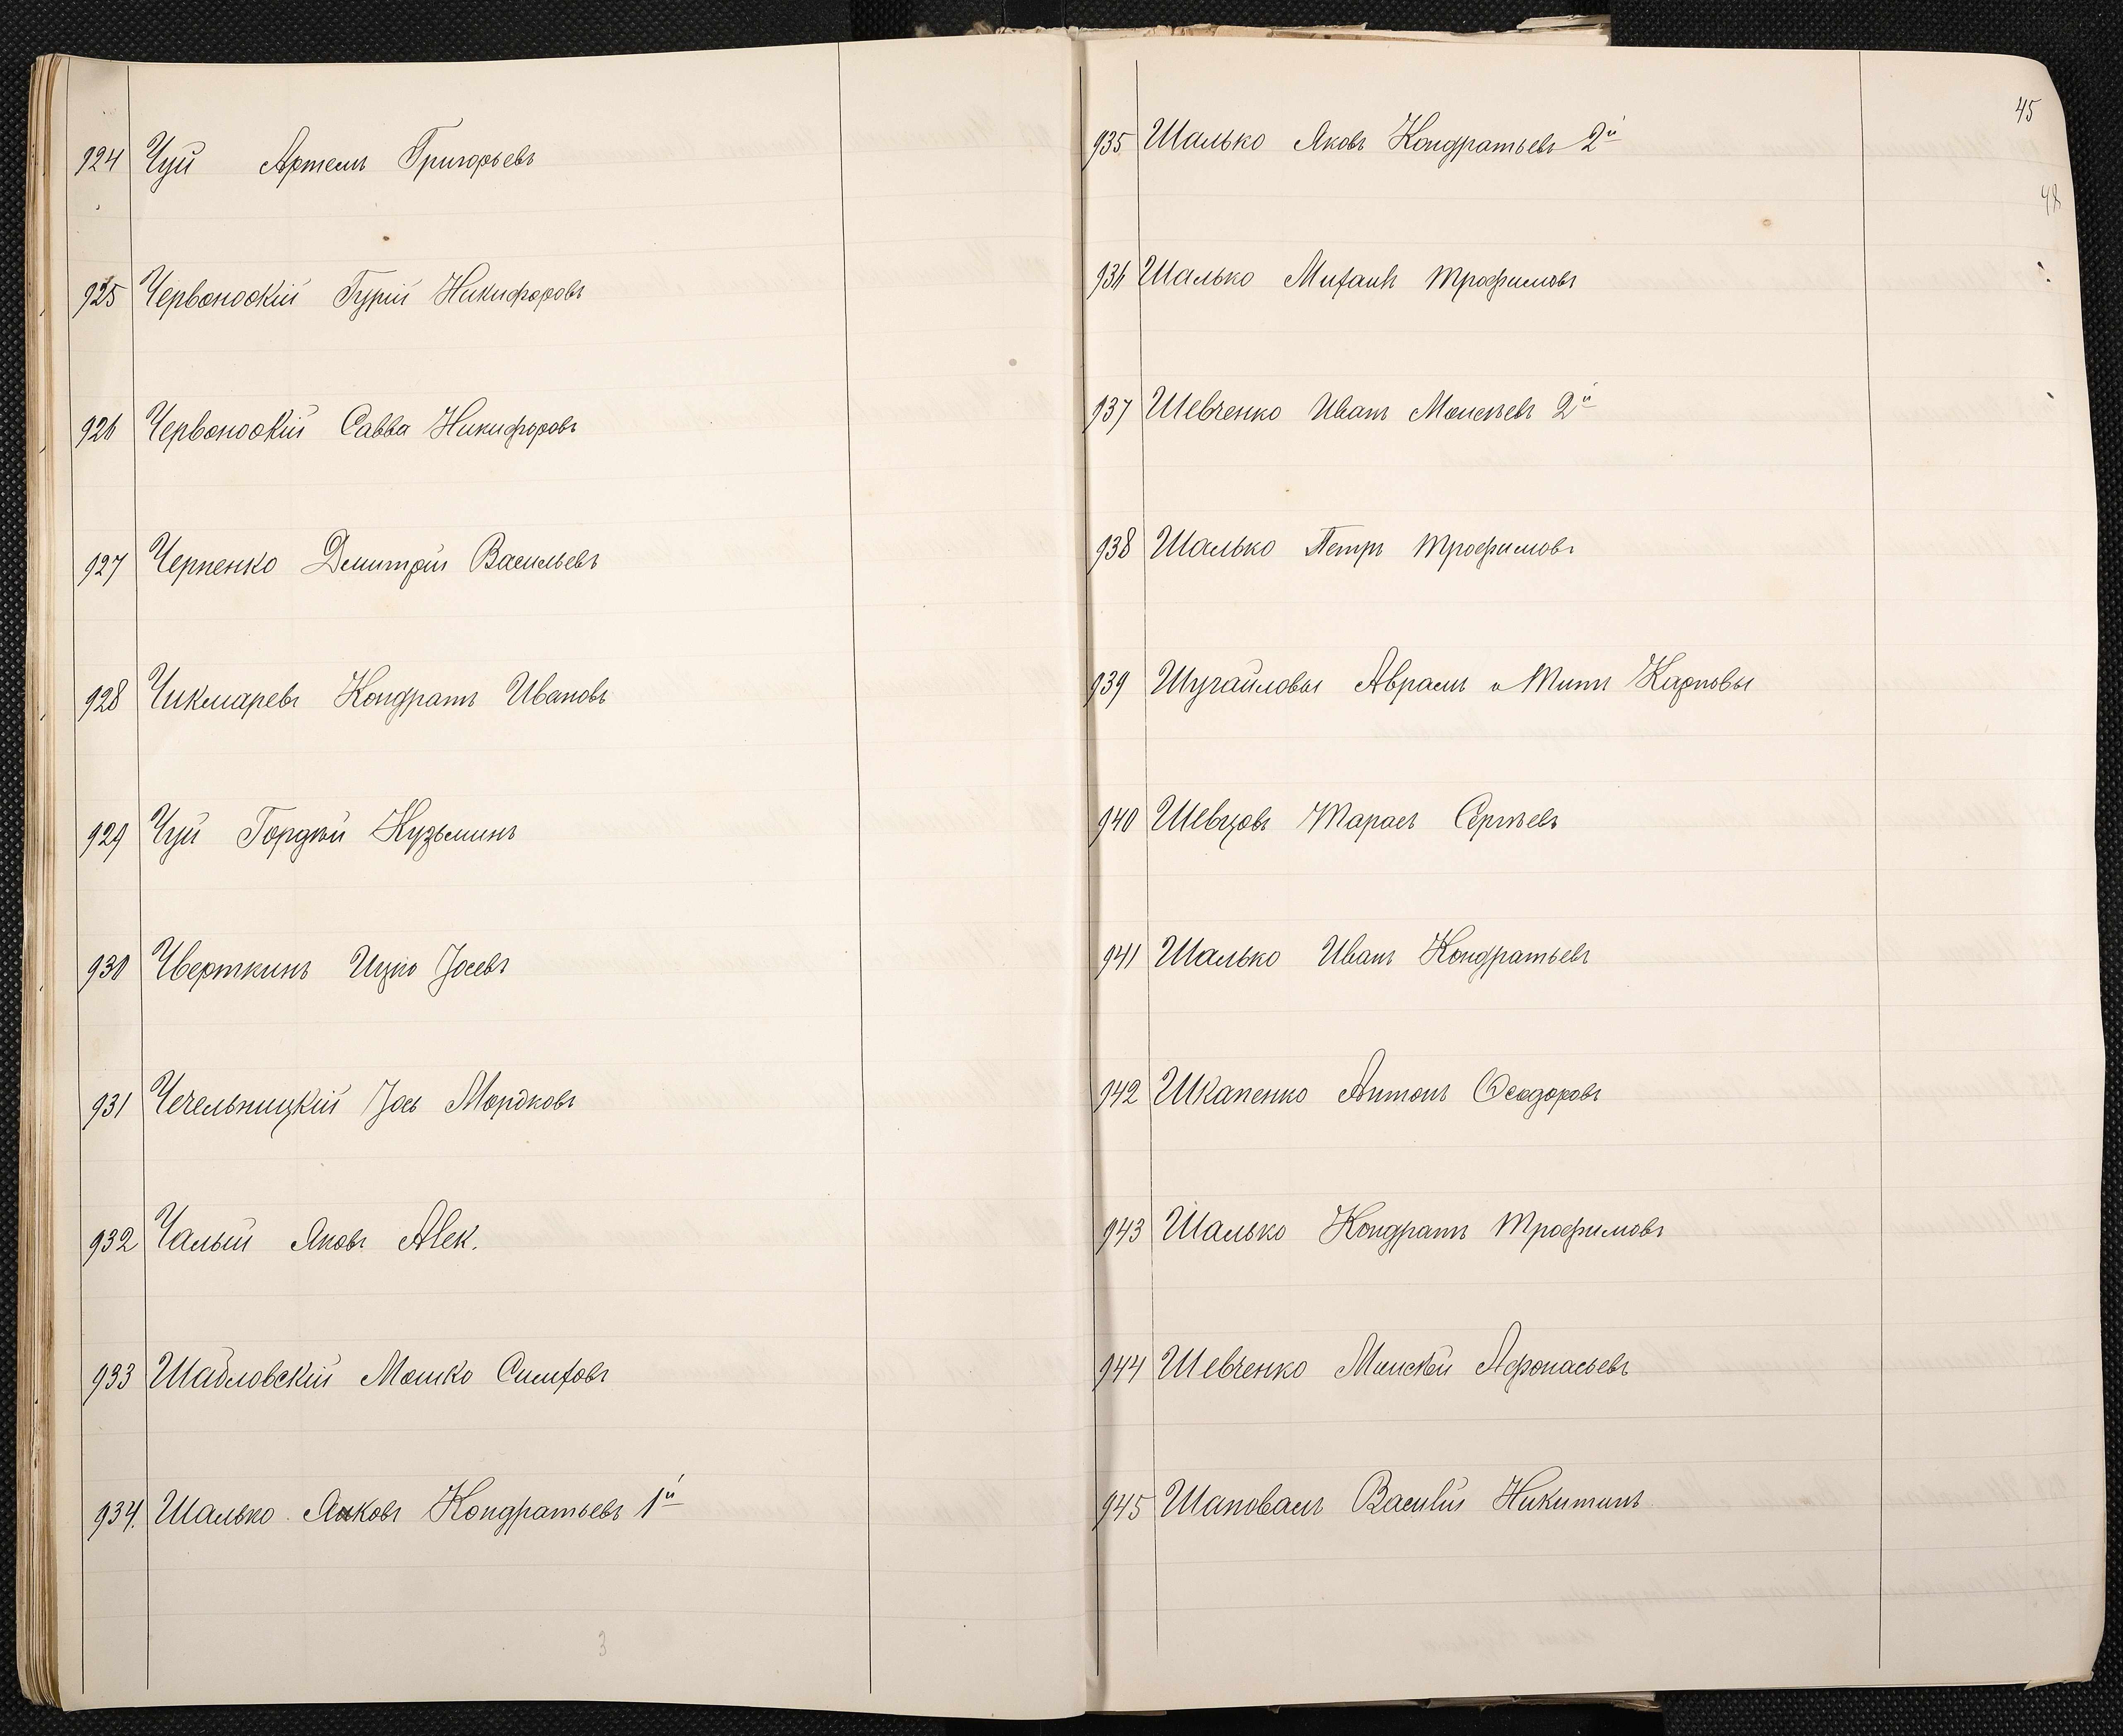 924 Чуй Артемъ Григорьевъ
925 Червоноокій Гурій Никифоровъ
926 Червоноокій Савва Никифоровъ
927 Черненко Дмитрій Васильевъ
928 Чикмаревъ Кондратъ Ивановъ
929 Чуй Гордѣй Кузьминъ
930 Чверткинъ Ицко Іосевъ
931 Чечельницкій Іось Мордковъ
932 Чалый Яковъ Алек.
933 Шадловскій Мошко Симховъ
934. Шалько Яковъ Кондратьевъ 1й
3
45
48
935 Шалько Яковъ Кондратьевъ 2й
936 Шалько Михаилъ Трофимовъ
937 Шевченко Иванъ Моисѣевъ 2й
938 Шалько Петръ Трофимовъ
939 Шугайловы Аврамъ и Титъ Карповы
940 Шевцовъ Тарасъ Сергѣевъ
941 Шалько Иванъ Кондратьевъ
942 Шкапенко Антонъ Ѳеодоровъ
943 Шалько Кондратъ Трофимовъ
944 Шевченко Моисѣй Афонасьевъ
945 Шаповалъ Василій Никитинъ